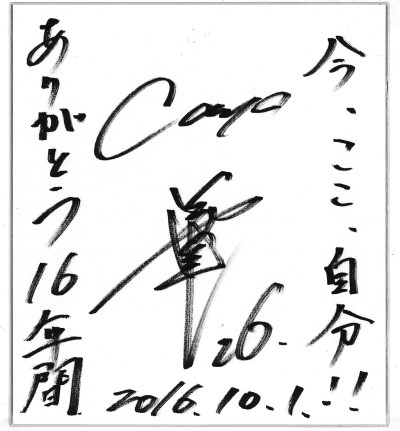 今、ここ、自分!!
Carp
26.
ありがとう16年間
2016.10.1.